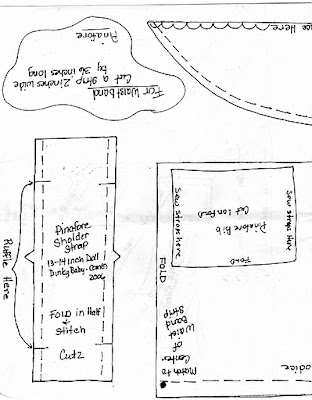 Pinafore
For Waistband
Cut a strip 2 inches wide
by 36 inches long
ce Here.
Ruffle Here
Pinafore
Sholder
Strap
13-14 inch Doll
Dunky Baby-
2006
FOLD in Half
Stitch
Cut 2
Sew straps here
Pinafore Bib
Cut 1 on Fold
FOLD
Sew straps here
FOLD
Match to Center
of
Waist
Band
Strip
odice